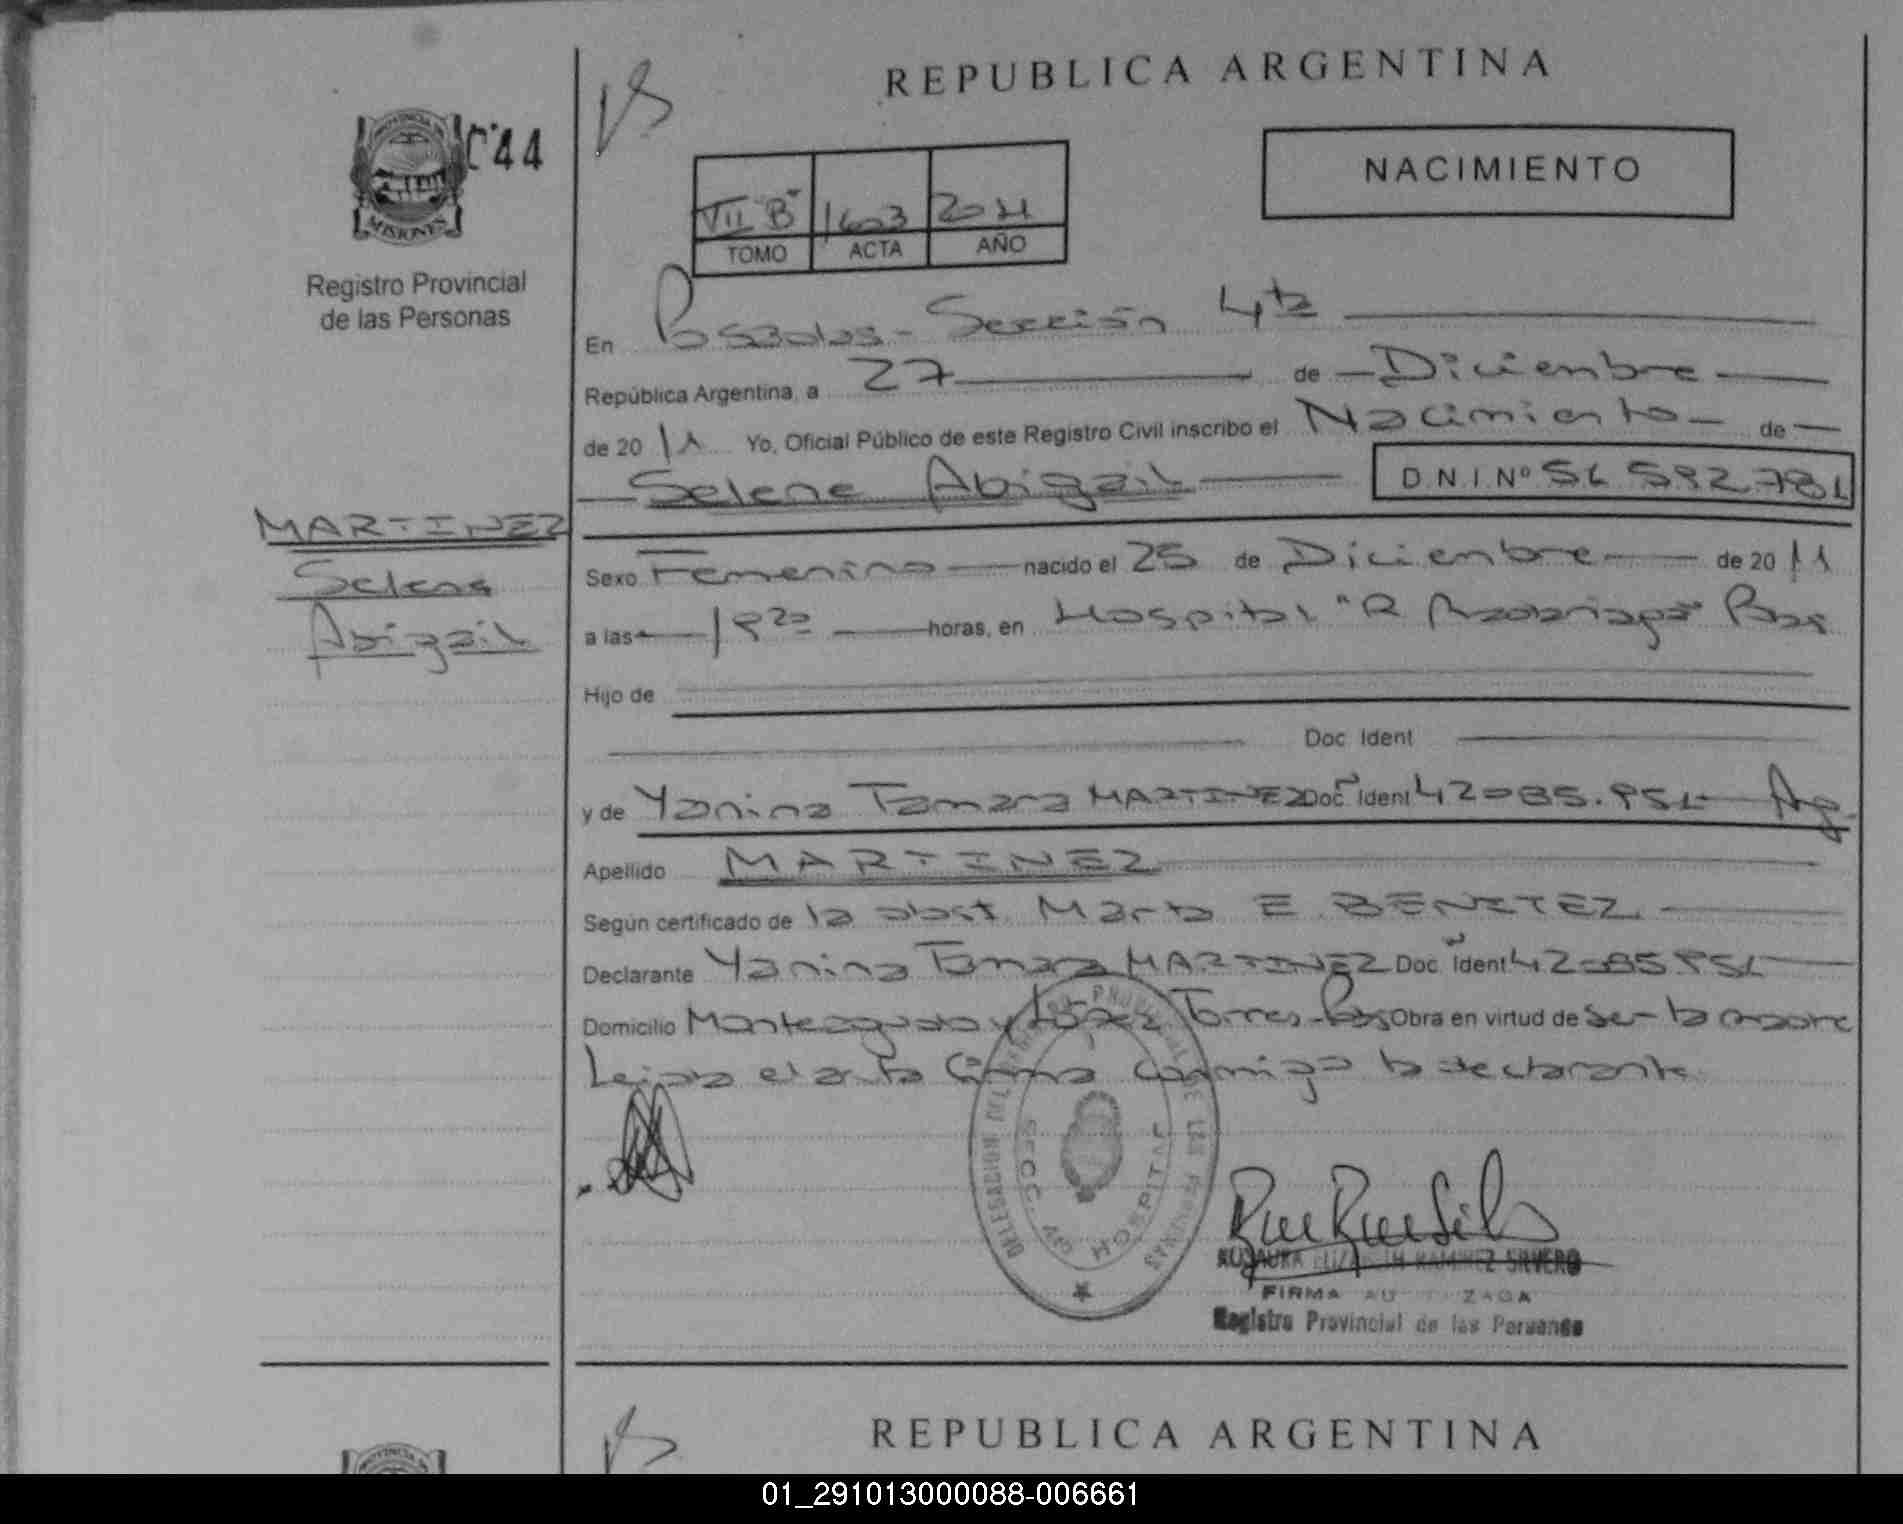 REPUBLICA ARGENTINA
PROVINCIA DE
MISIONES
44
NACIMIENTO
VII "B" 1603 2011
TOMO ACTA AÑO
Registro Provincial
de las Personas
En Posadas - Sección 4ta
República Argentina, a 27 de Diciembre
de 2011 Yo, Oficial Público de este Registro Civil inscribo el Nacimiento de
Selene Abigail D.N.I.Nº
MARTINEZ
Selene
Abigail
Sexo Femenino nacido el 25 de Diciembre de 2011
a las horas, en Hospital "R Madariaga" Pos
Hijo de
Doc. Ident
y de Yanina Tamara MARTINEZ Doc. Ident
Apellido MARTINEZ
Según certificado de la obst. Marta E. BENITEZ
Declarante Yanina Tamara MARTINEZ Doc. Ident
Domicilio Monteagudo y López Torres - Pos Obra en virtud de ser la madre
Leida el acta firma conmigo la declarante
DELEGACION DEL REGISTRO PROVINCIAL DE LAS PERSONAS
SECC. 4ta HOSPITAL
RAMIREZ SILVERO
FIRMA AUTORIZADA
Registro Provincial de las Personas
REPUBLICA ARGENTINA
01_291013000088-006661